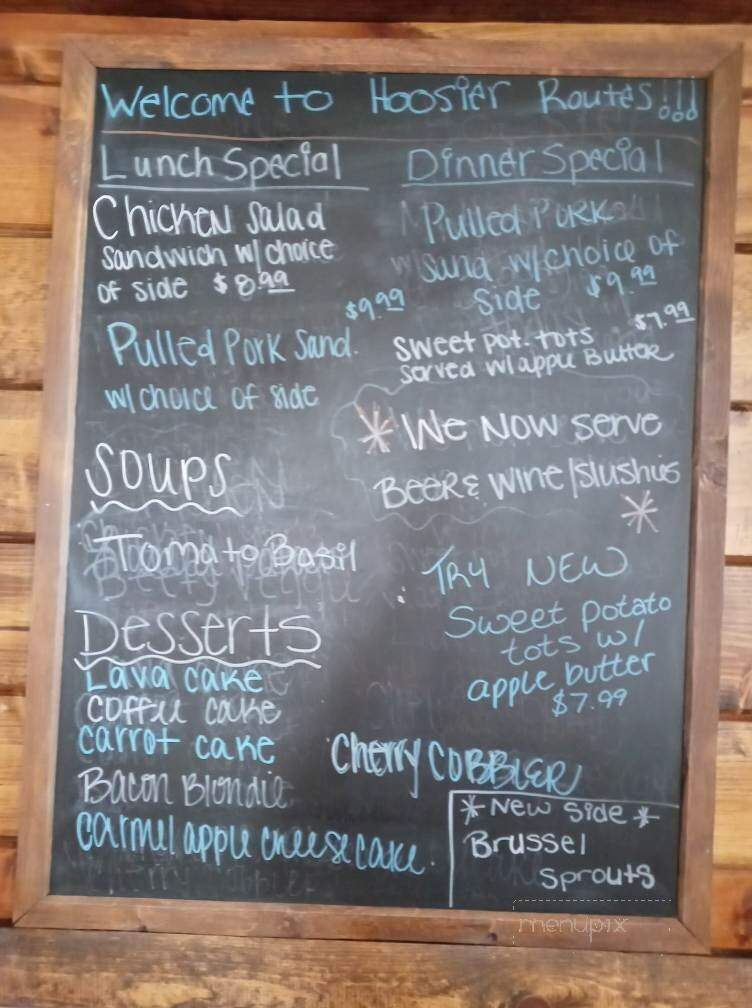 Welcome to Hoosier Routes!!!
Lunch Special
Chicken Salad
Sandwich w/ choice
of side $8.99
$9.99
Pulled Pork Sand.
w/ choice of side
Soups
Tomato Basil
Desserts
Lava cake
Coffee cake
carrot cake
Bacon Blondie
carmel apple cheesecake.
Dinner Special
Pulled Pork
Sand w/ choice of
side $9.99
Sweet pot. tots $7.99
served w/ apple Butter
* We Now serve
Beer & Wine/Slushies
*
Try NEW
Sweet potato
tots w/
apple butter
$7.99
Cherry COBBLER
* New Side *
Brussel
Sprouts
menupix